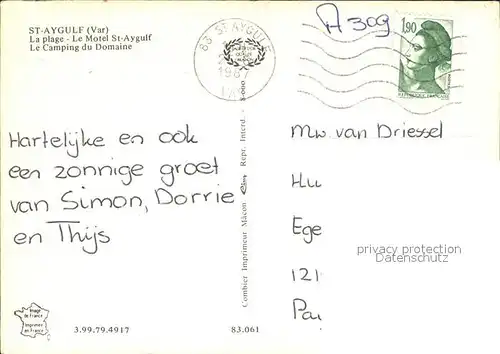 ST-AYGULF (Var)
La plage - Le Motel St-Aygulf
Le Camping du Domaine
A 309
83 ST AYGULF
1987
VAR
1,90
REPUBLIQUE FRANÇAISE
Hartelijke en ook
een zonnige groet
van Simon, Dorrie
en Thijs
Mw. van Driessel
Hu
Ege
121
Par
privacy protection
Datenschutz
Combier Imprimeur Mâcon Cim Repr. Interd. - 8.000
Image
de France
Imprimée
en France
3.99.79.4917
83.061